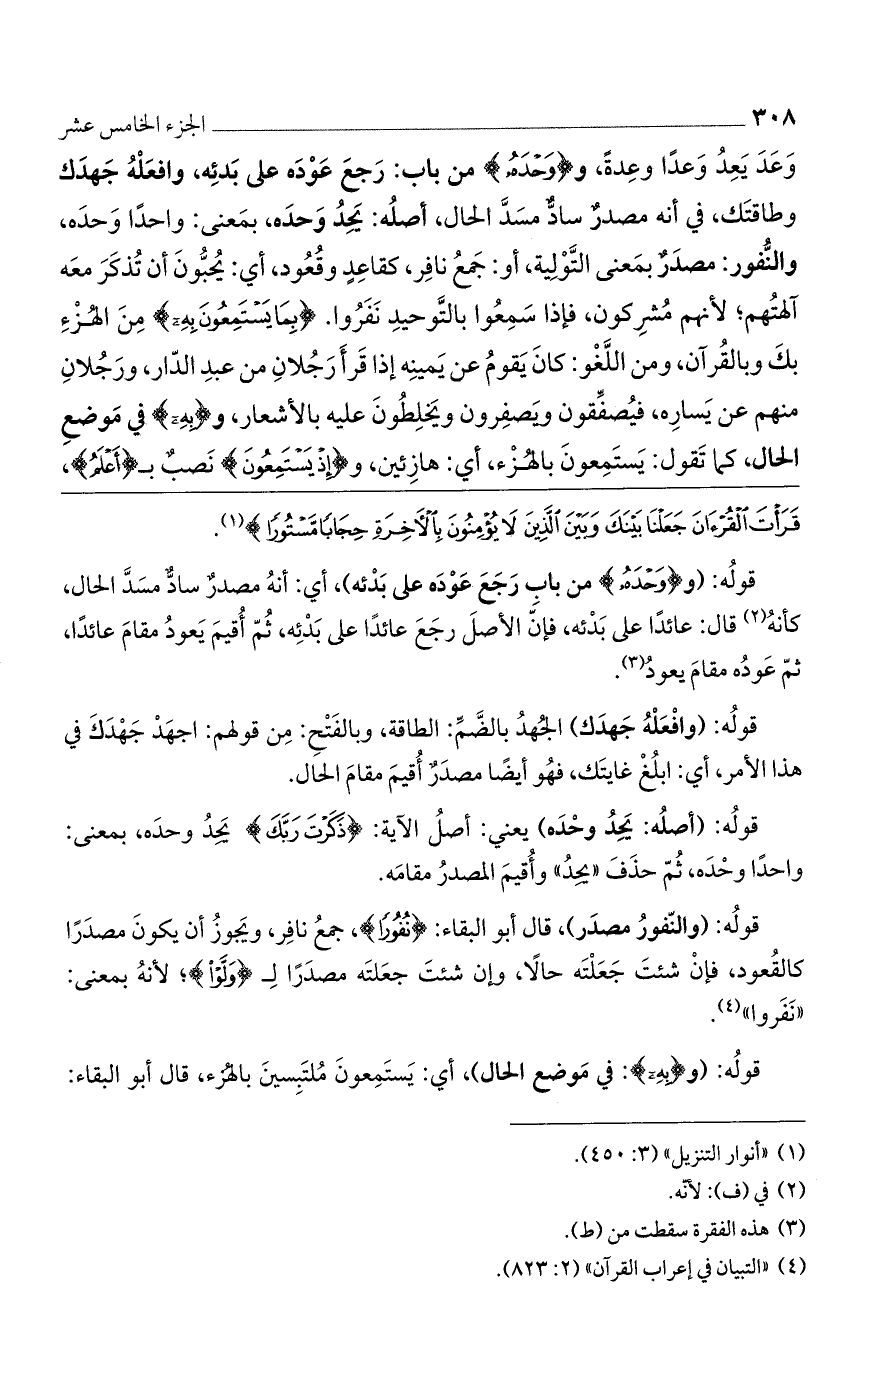 ٣٠٨ الجزء الخامس عشر
وَعَدَ يَعِدُ وَعدًا وعِدةً، و﴿وَحْدَهُۥ﴾ من باب: رَجعَ عَوْدَه على بَدئِه، وافعَلْهُ جَهدَك
وطاقتَك، في أنه مصدرٌ سادٌّ مسَدَّ الحال، أصلُه: يَحِدُ وَحدَه، بمَعنى: واحدًا وَحدَه،
والنُّفور: مصدَرٌ بمَعنى التَّوْلية، أو: جَمعُ نافِر، كقاعِدٍ وقُعُود، أي: يُحبُّونَ أن تُذكَرَ معَه
آلهتُهم؛ لأنهم مُشرِكون، فإذا سَمِعُوا بالتَّوحيدِ نَفَرُوا. ﴿بِمَا يَسْتَمِعُونَ بِهِۦ﴾ مِنَ الهُزْءِ
بكَ وبالقُرآن، ومن اللَّغْو: كانَ يَقومُ عن يَمينِه إذا قَرأَ رَجُلانِ من عبدِ الدّار، ورَجُلانِ
منهم عن يَسارِه، فيُصفِّقون ويَصفِرون ويَخلِطُونَ عليه بالأشعار، و﴿بِهِۦ﴾ في مَوضعِ
الحال، كما تَقول: يَستَمِعونَ بالهُزْء، أي: هازِئين، و﴿إِذْ يَسْتَمِعُونَ﴾ نَصبٌ بـ﴿أَعْلَمُ﴾،
قَرَأْتَ ٱلْقُرْءَانَ جَعَلْنَا بَيْنَكَ وَبَيْنَ ٱلَّذِينَ لَا يُؤْمِنُونَ بِٱلْأَخِرَةِ حِجَابًا مَّسْتُورًا﴾(١).
قولُه: (و﴿وَحْدَهُۥ﴾ من بابِ رَجَعَ عَوْدَه على بَدْئه)، أي: أنهُ مصدرٌ سادٌّ مسَدَّ الحال،
كأنهُ(٢) قال: عائدًا على بَدْئه، فإنّ الأصلَ رجَعَ عائدًا على بَدْئِه، ثُمّ أُقيمَ يَعودُ مقامَ عائدًا،
ثمّ عَودُه مقامَ يعودُ(٣).
قولُه: (وافْعَلْهُ جَهدَك) الجُهدُ بالضَّمِّ: الطاقة، وبالفَتْحِ: مِن قولهم: اجهَدْ جَهْدَكَ في
هذا الأمر، أي: ابلُغْ غايتَك، فهُو أيضًا مصدَرٌ أُقيمَ مقامَ الحال.
قولُه: (أصلُه: يَحِدُ وحْدَه) يعني: أصلُ الآية: ﴿ذَكَرْتَ رَبَّكَ﴾ يَحِدُ وحدَه، بمعنى:
واحدًا وحْدَه، ثُمّ حذَفَ «يحِدُ» وأُقيمَ المصدرُ مقامَه.
قولُه: (والنّفورُ مصدَر)، قال أبو البقاء: ﴿نُفُورًا﴾، جمعُ نافِر، ويَجوزُ أن يكونَ مصدَرًا
كالقُعود، فإنْ شئتَ جَعَلْتَه حالًا، وإن شئتَ جعَلتَه مصدَرًا لِـ ﴿وَلَّوْا۟﴾؛ لأنهُ بمعنى:
«نَفَروا»(٤).
قولُه: (و﴿بِهِۦ﴾: في مَوضع الحال)، أي: يَستَمِعونَ مُلتَبِسينَ بالهُزء، قال أبو البقاء:
(١) «أنوار التنزيل» (٣: ٤٥٠).
(٢) في (ف): لأنّه.
(٣) هذه الفقرة سقطت من (ط).
(٤) «التبيان في إعراب القرآن» (٢: ٨٢٣).